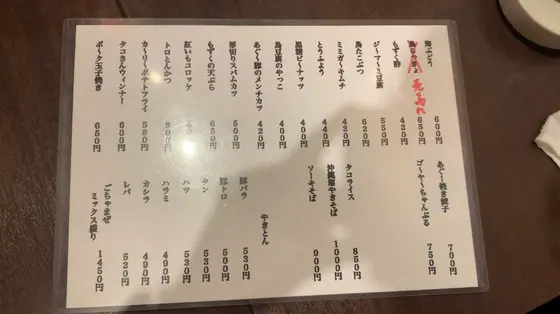 海ぶどう 600円
650円
売切れ
もずく酢 420円
ジーマーミ豆腐 550円
島たこぶつ 620円
ミミガーキムチ 430円
とうふよう 440円
黒糖ピーナッツ 400円
島豆腐のやっこ 400円
あぐー豚のメンチカツ 420円
厚切りスパムカツ 500円
もずくの天ぷら 650円
紅いもコロッケ
トロとんかつ
カーリーポテトフライ 580円
タコさんウィンナー 600円
ポーク玉子焼き 650円
あぐー焼き餃子 700円
ゴーヤーちゃんぷる 750円
タコライス 850円
沖縄塩やきそば 1000円
ソーキそば 900円
やきとん
豚バラ 530円
豚トロ 500円
タン 530円
ハツ 530円
ハラミ 490円
カシラ 490円
レバ 520円
ごちゃまぜ
ミックス盛り 1450円